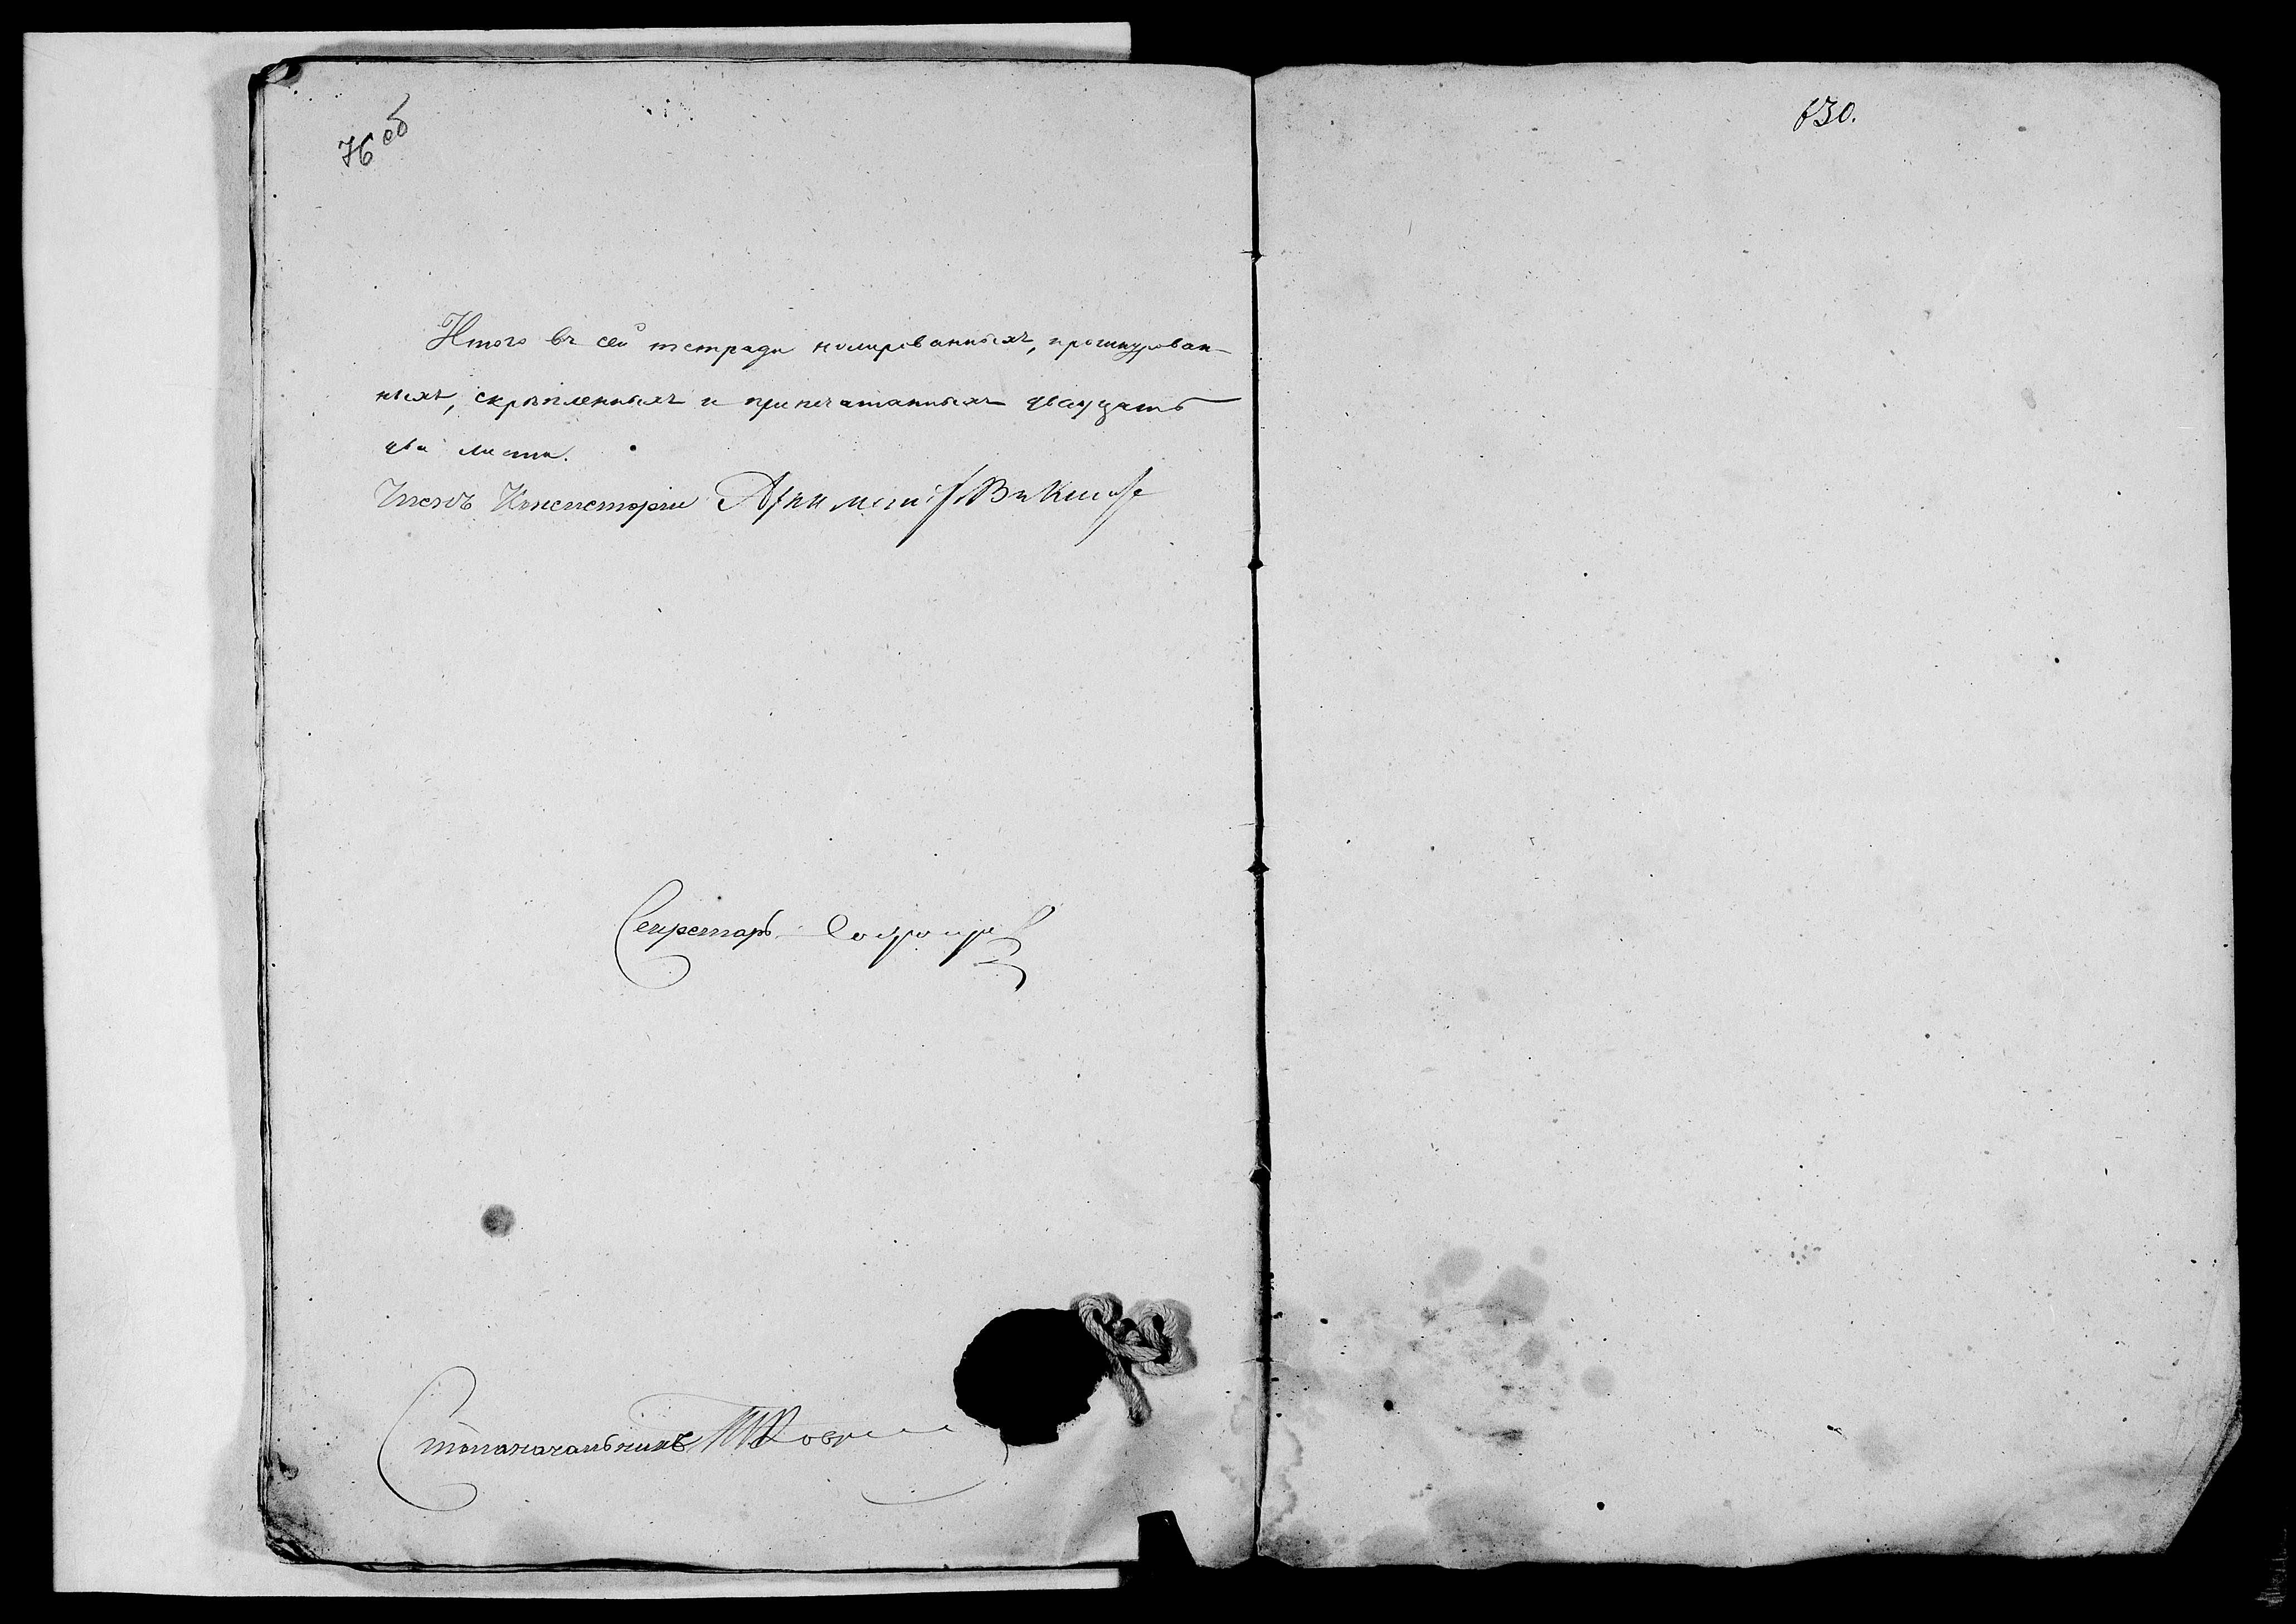 76 об
630.
Итого въ сей тетради номерованныхъ, прошнурован-
ныхъ, скрѣпленныхъ и припечатанныхъ двадцать
два листа.
Членъ Консисторіи Архимандр
Секретарь
Столоначальникъ